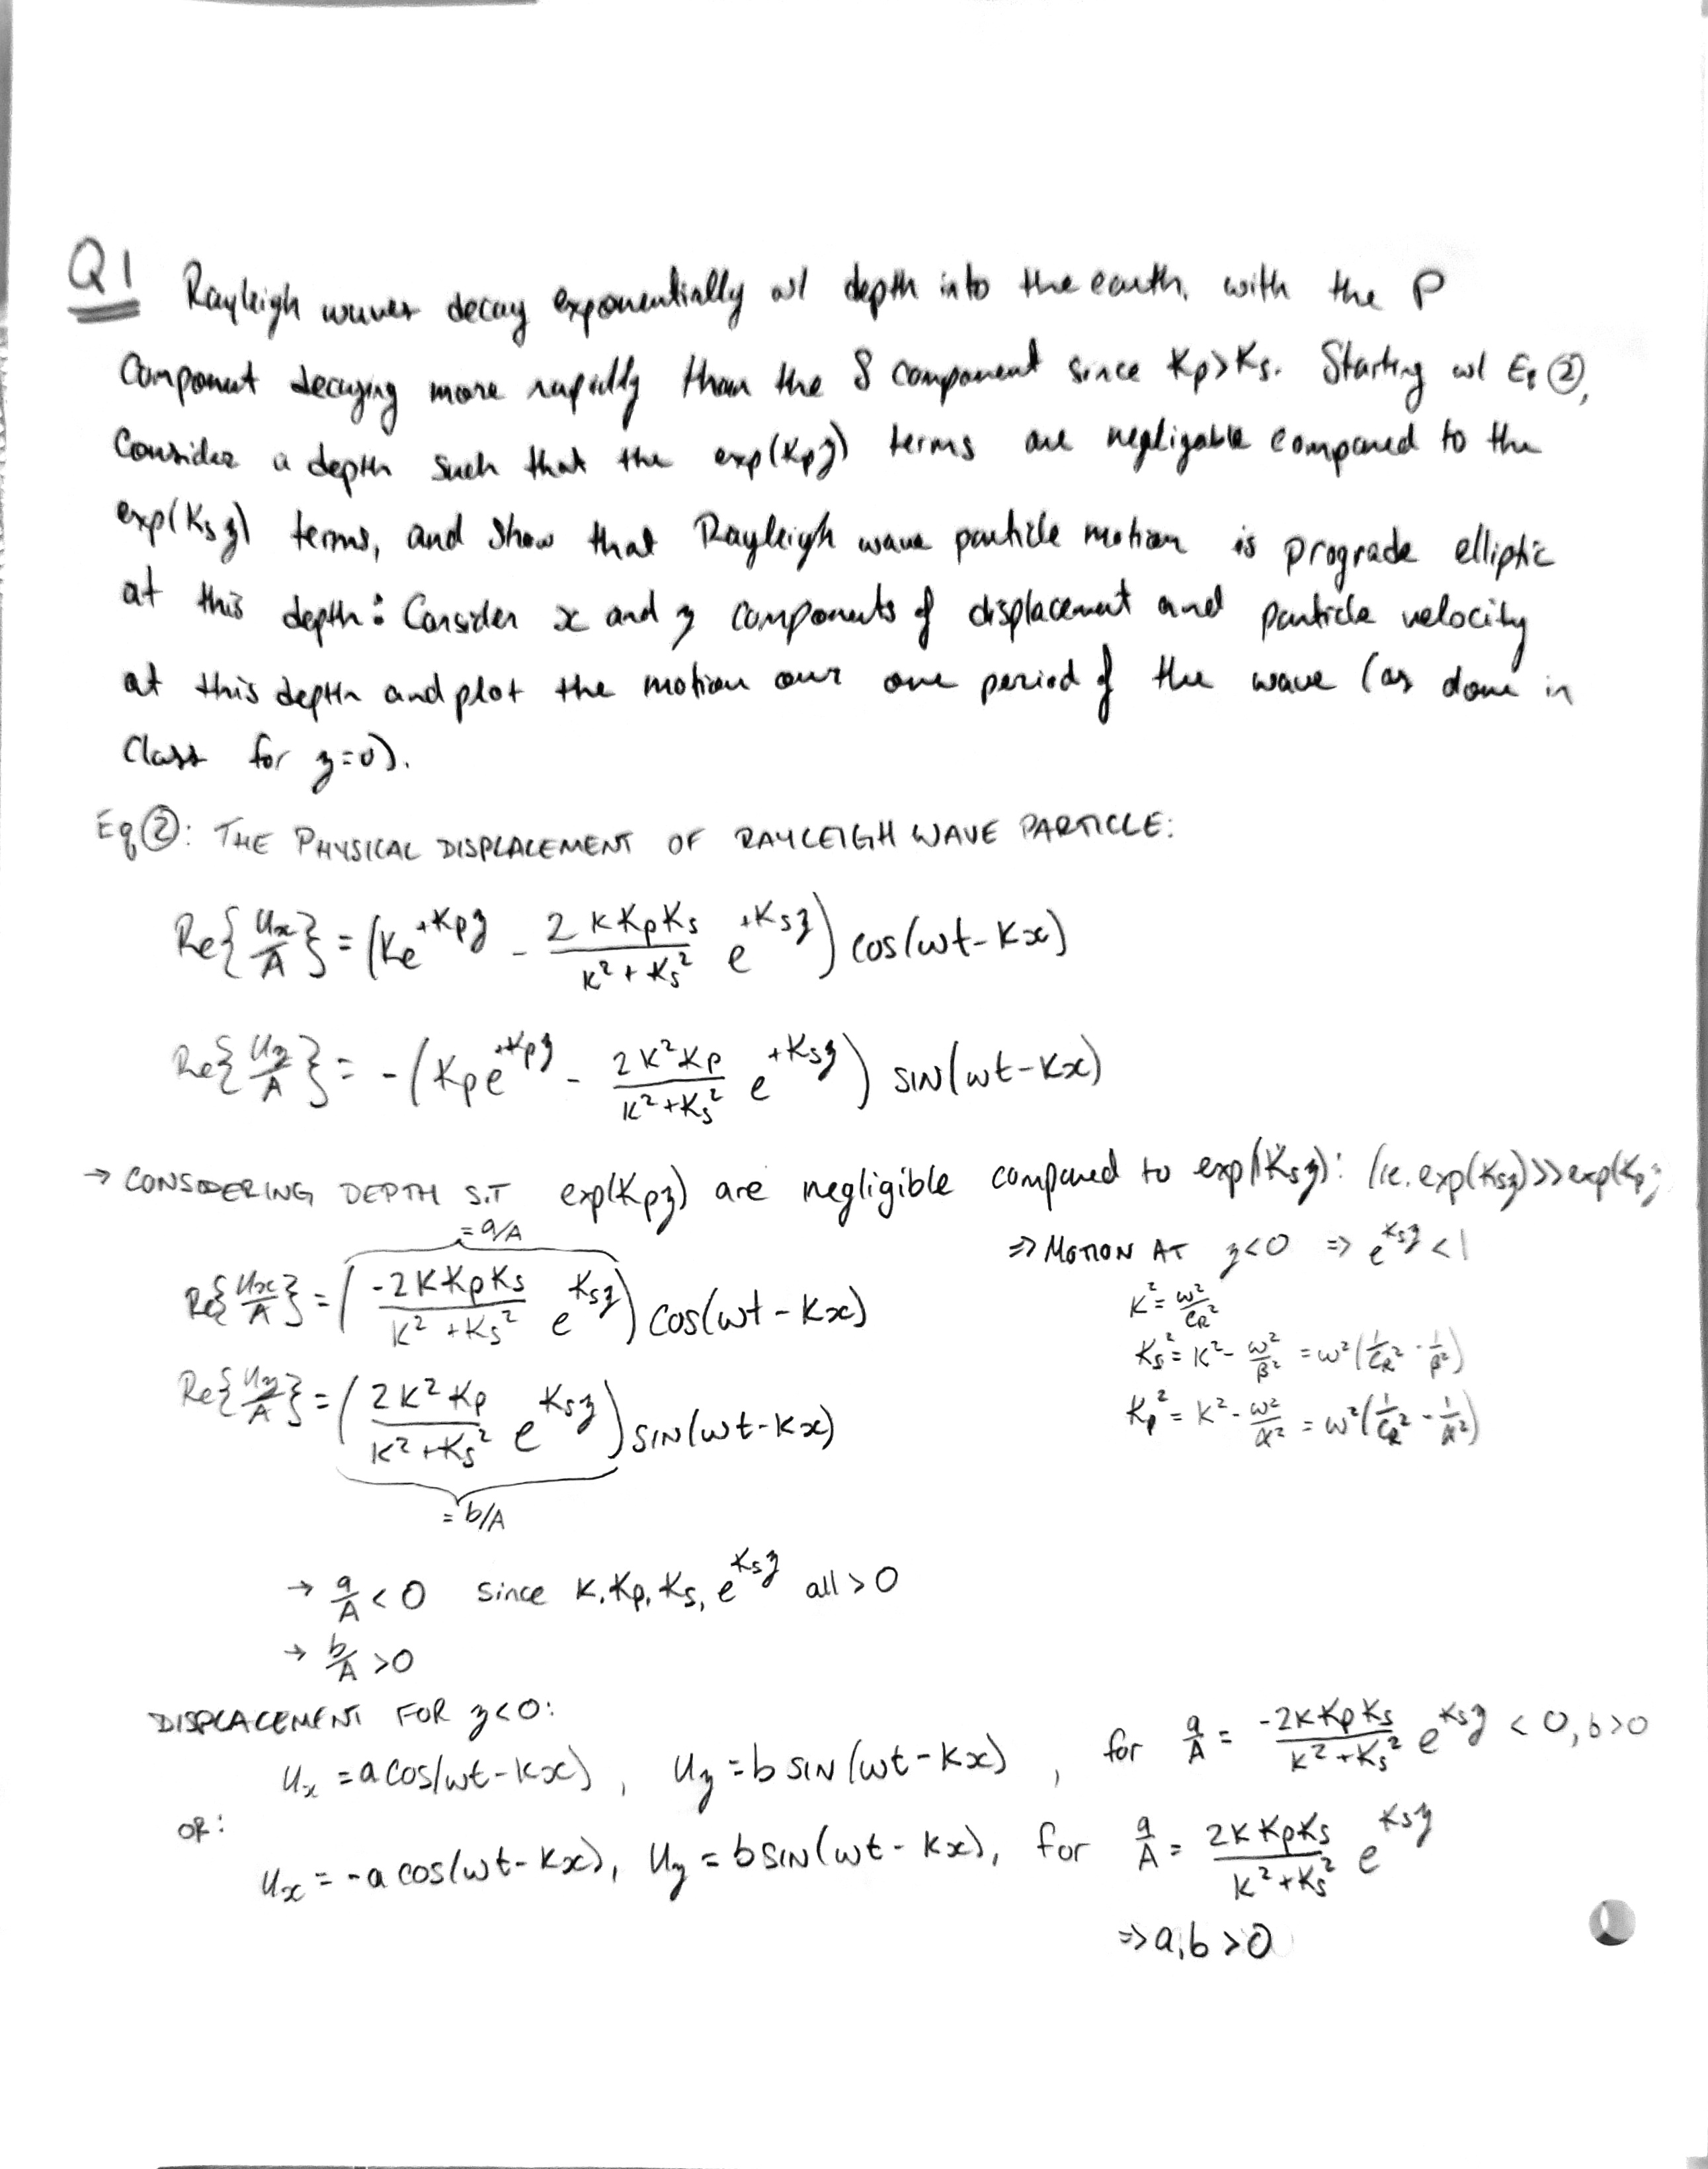 Q1 Rayleigh waves decay exponentially w/ depth into the earth, with the P
Component decaying more rapidly than the S component since Kp>Ks. Starting w/ Eq ②,
Consider a depth such that the exp(Kpz) terms are negligable compared to the
exp(Ksz) terms, and show that Rayleigh wave particle motion is prograde elliptic
at this depth: Consider x and z components of displacement and particle velocity
at this depth and plot the motion over one period of the wave (as done in
Class for z=0).
Eq②: THE PHYSICAL DISPLACEMENT OF RAYLEIGH WAVE PARTICLE:
Re{Ux/A} = (Ke^{+Kpz} - 2KKpKs/(K²+Ks²) e^{+Ksz}) cos(ωt-Kx)
Re{Uz/A} = -(Kpe^{+Kpz} - 2K²Kp/(K²+Ks²) e^{+Ksz}) SIN(ωt-Kx)
→ CONSIDERING DEPTH S.T exp(Kpz) are negligible compared to exp(Ksz): (ie. exp(Ksz)>>exp(Kpz
= a/A
⇒ MOTION AT z<0 ⇒ e^{Ksz} <1
Re{Ux/A} = (-2KKpKs/(K²+Ks²) e^{Ksz}) cos(ωt-Kx)
K² = ω²/C_R²
Ks² = K² - ω²/β² = ω²(1/C_R² - 1/β²)
Re{Uz/A} = (2K²Kp/(K²+Ks²) e^{Ksz}) SIN(ωt-Kx)
Kp² = K² - ω²/α² = ω²(1/C_R² - 1/α²)
= b/A
→ a/A < 0 since K, Kp, Ks, e^{Ksz} all > 0
→ b/A > 0
DISPLACEMENT FOR z<0:
Ux = a cos(ωt-Kx), Uz = b SIN(ωt-Kx), for a/A = -2KKpKs/(K²+Ks²) e^{Ksz} < 0, b>0
OR:
Ux = -a cos(ωt-Kx), Uz = b SIN(ωt-Kx), for a/A = 2KKpKs/(K²+Ks²) e^{Ksz}
⇒ a,b > 0